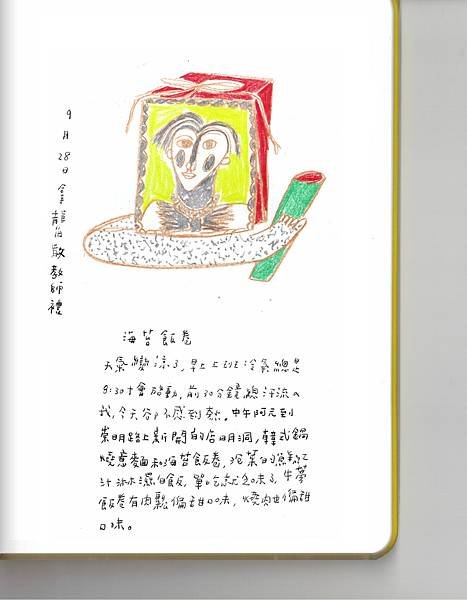 9月28日 金龍伯啟教師禮
海苔飯卷
天氣變涼了,早上上班冷氣總是
8:30才會啟動,前30分鐘總汗流的
我,今天卻不感到熱。中午阿元到
崇明路上新開的店明洞,韓式鍋
燒意麵和海苔飯卷,泡菜的魚
汁淋濕白飯,單吃就夠味了,牛蒡
飯卷有肉鬆偏甜口味,燒肉也偏甜
口味。